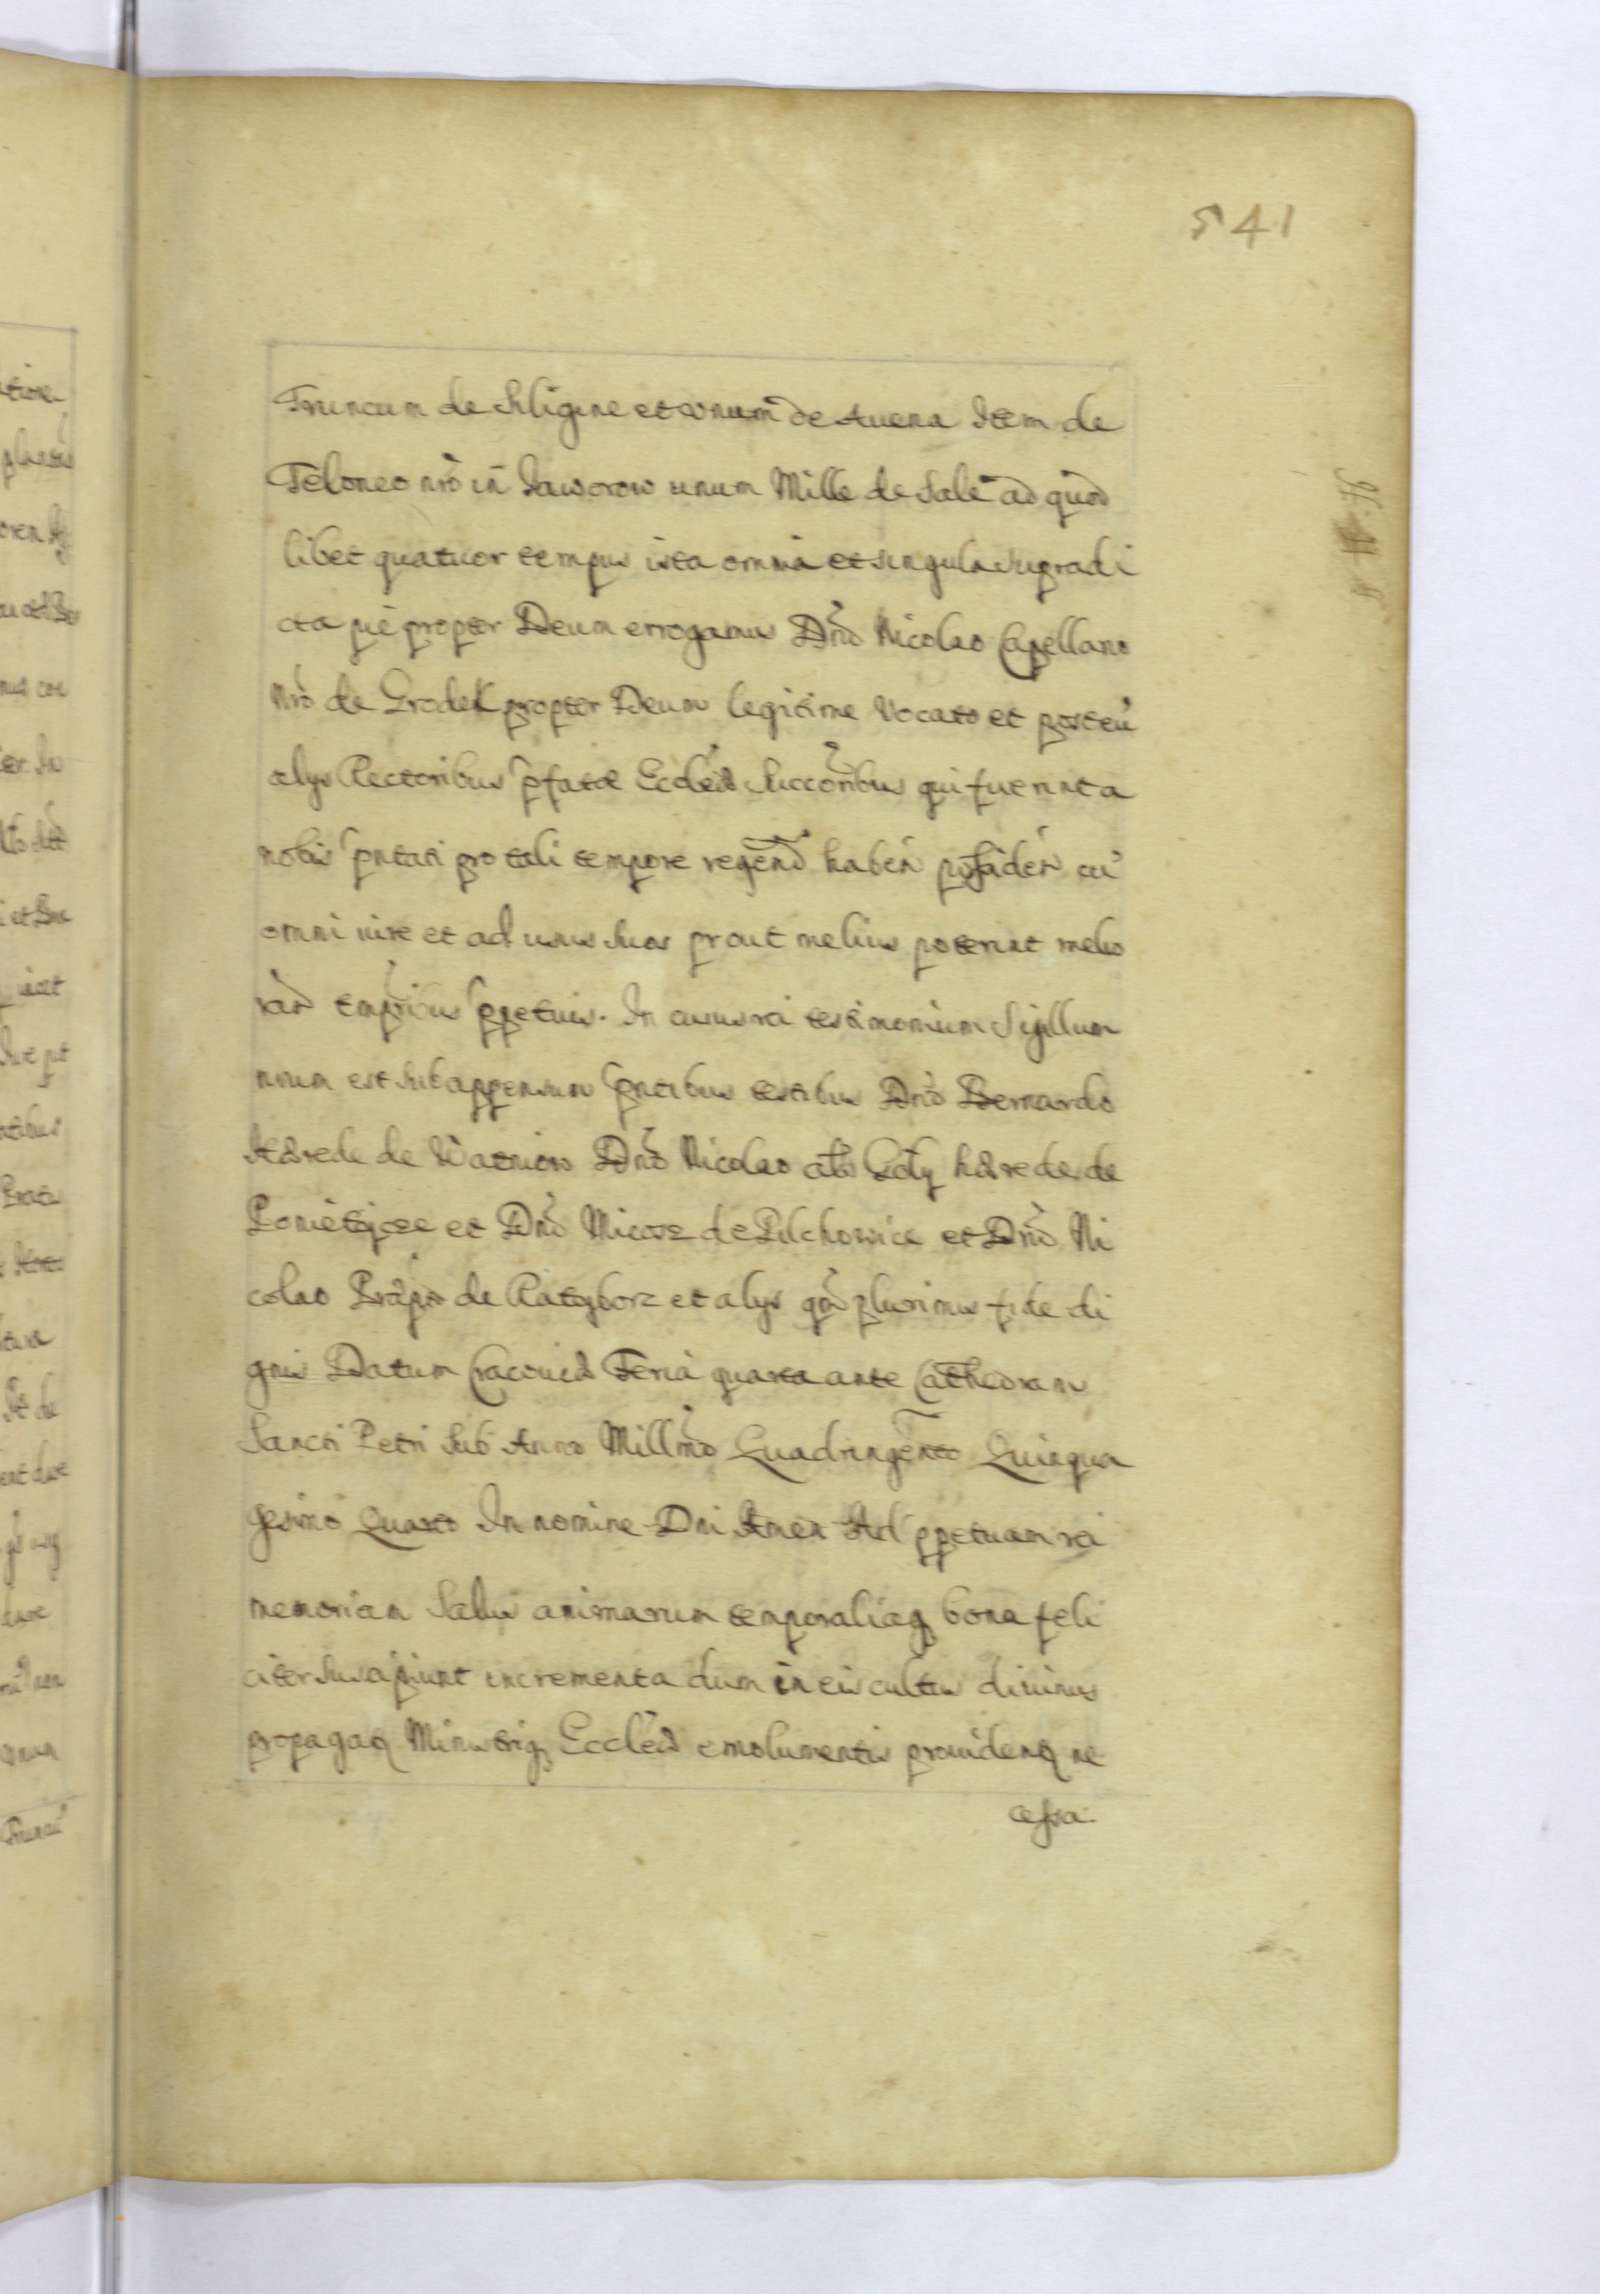 541
Truncum de Siligine et unum de Auena Item de
Teloneo nrō in Jaworow unum Mille de Sale ad quod
libet quatuor tempus ista omnia et singula supradi
cta pie propter Deum errogamus Dnō Nicolao Capellano
nrō de Grodek propter Deum legitime Vocato et posteū
alys Rectoribus pfatæ Ecclēæ Succōribus qui fuerint a
nobis pntati pro tali tempore regend haben possiden cū
omni iure et ad usus suos prout melius poterint melio
rand tempribus ppetuis. In cuius rei testimonium Sigillum
nrum est subappensum pntibus testibus Dnō Bernardo
Hærede de Dnō Nicolao als hærede de
et Dnō de Pilchowice et Dnō Ni
colao de Ratyborz et alys qm plurimis fide di
gnis Datum Cracouiæ Feria quarta ante Cathedram
Sancti Petri Sub Anno Millmō Quadringento Quinqua
gesimo Quarto In nomine Dni Amen Ad ppetuam rei
memoriam Salus animarum temporaliaq bona feli
citer suscipiunt incrementa dum in eis cultus diuinus
propagaq Ministrisq Ecclēæ emolumentis prouidenq ne
cessa: